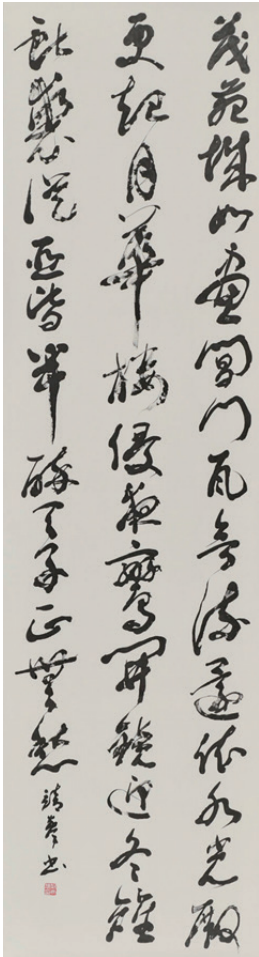 茂苑城如畫閶門瓦欲流還依水光殿
更起月華樓侵夜鸞開鏡迎冬雉
獻裘從臣皆半醉天子正無愁
靖書